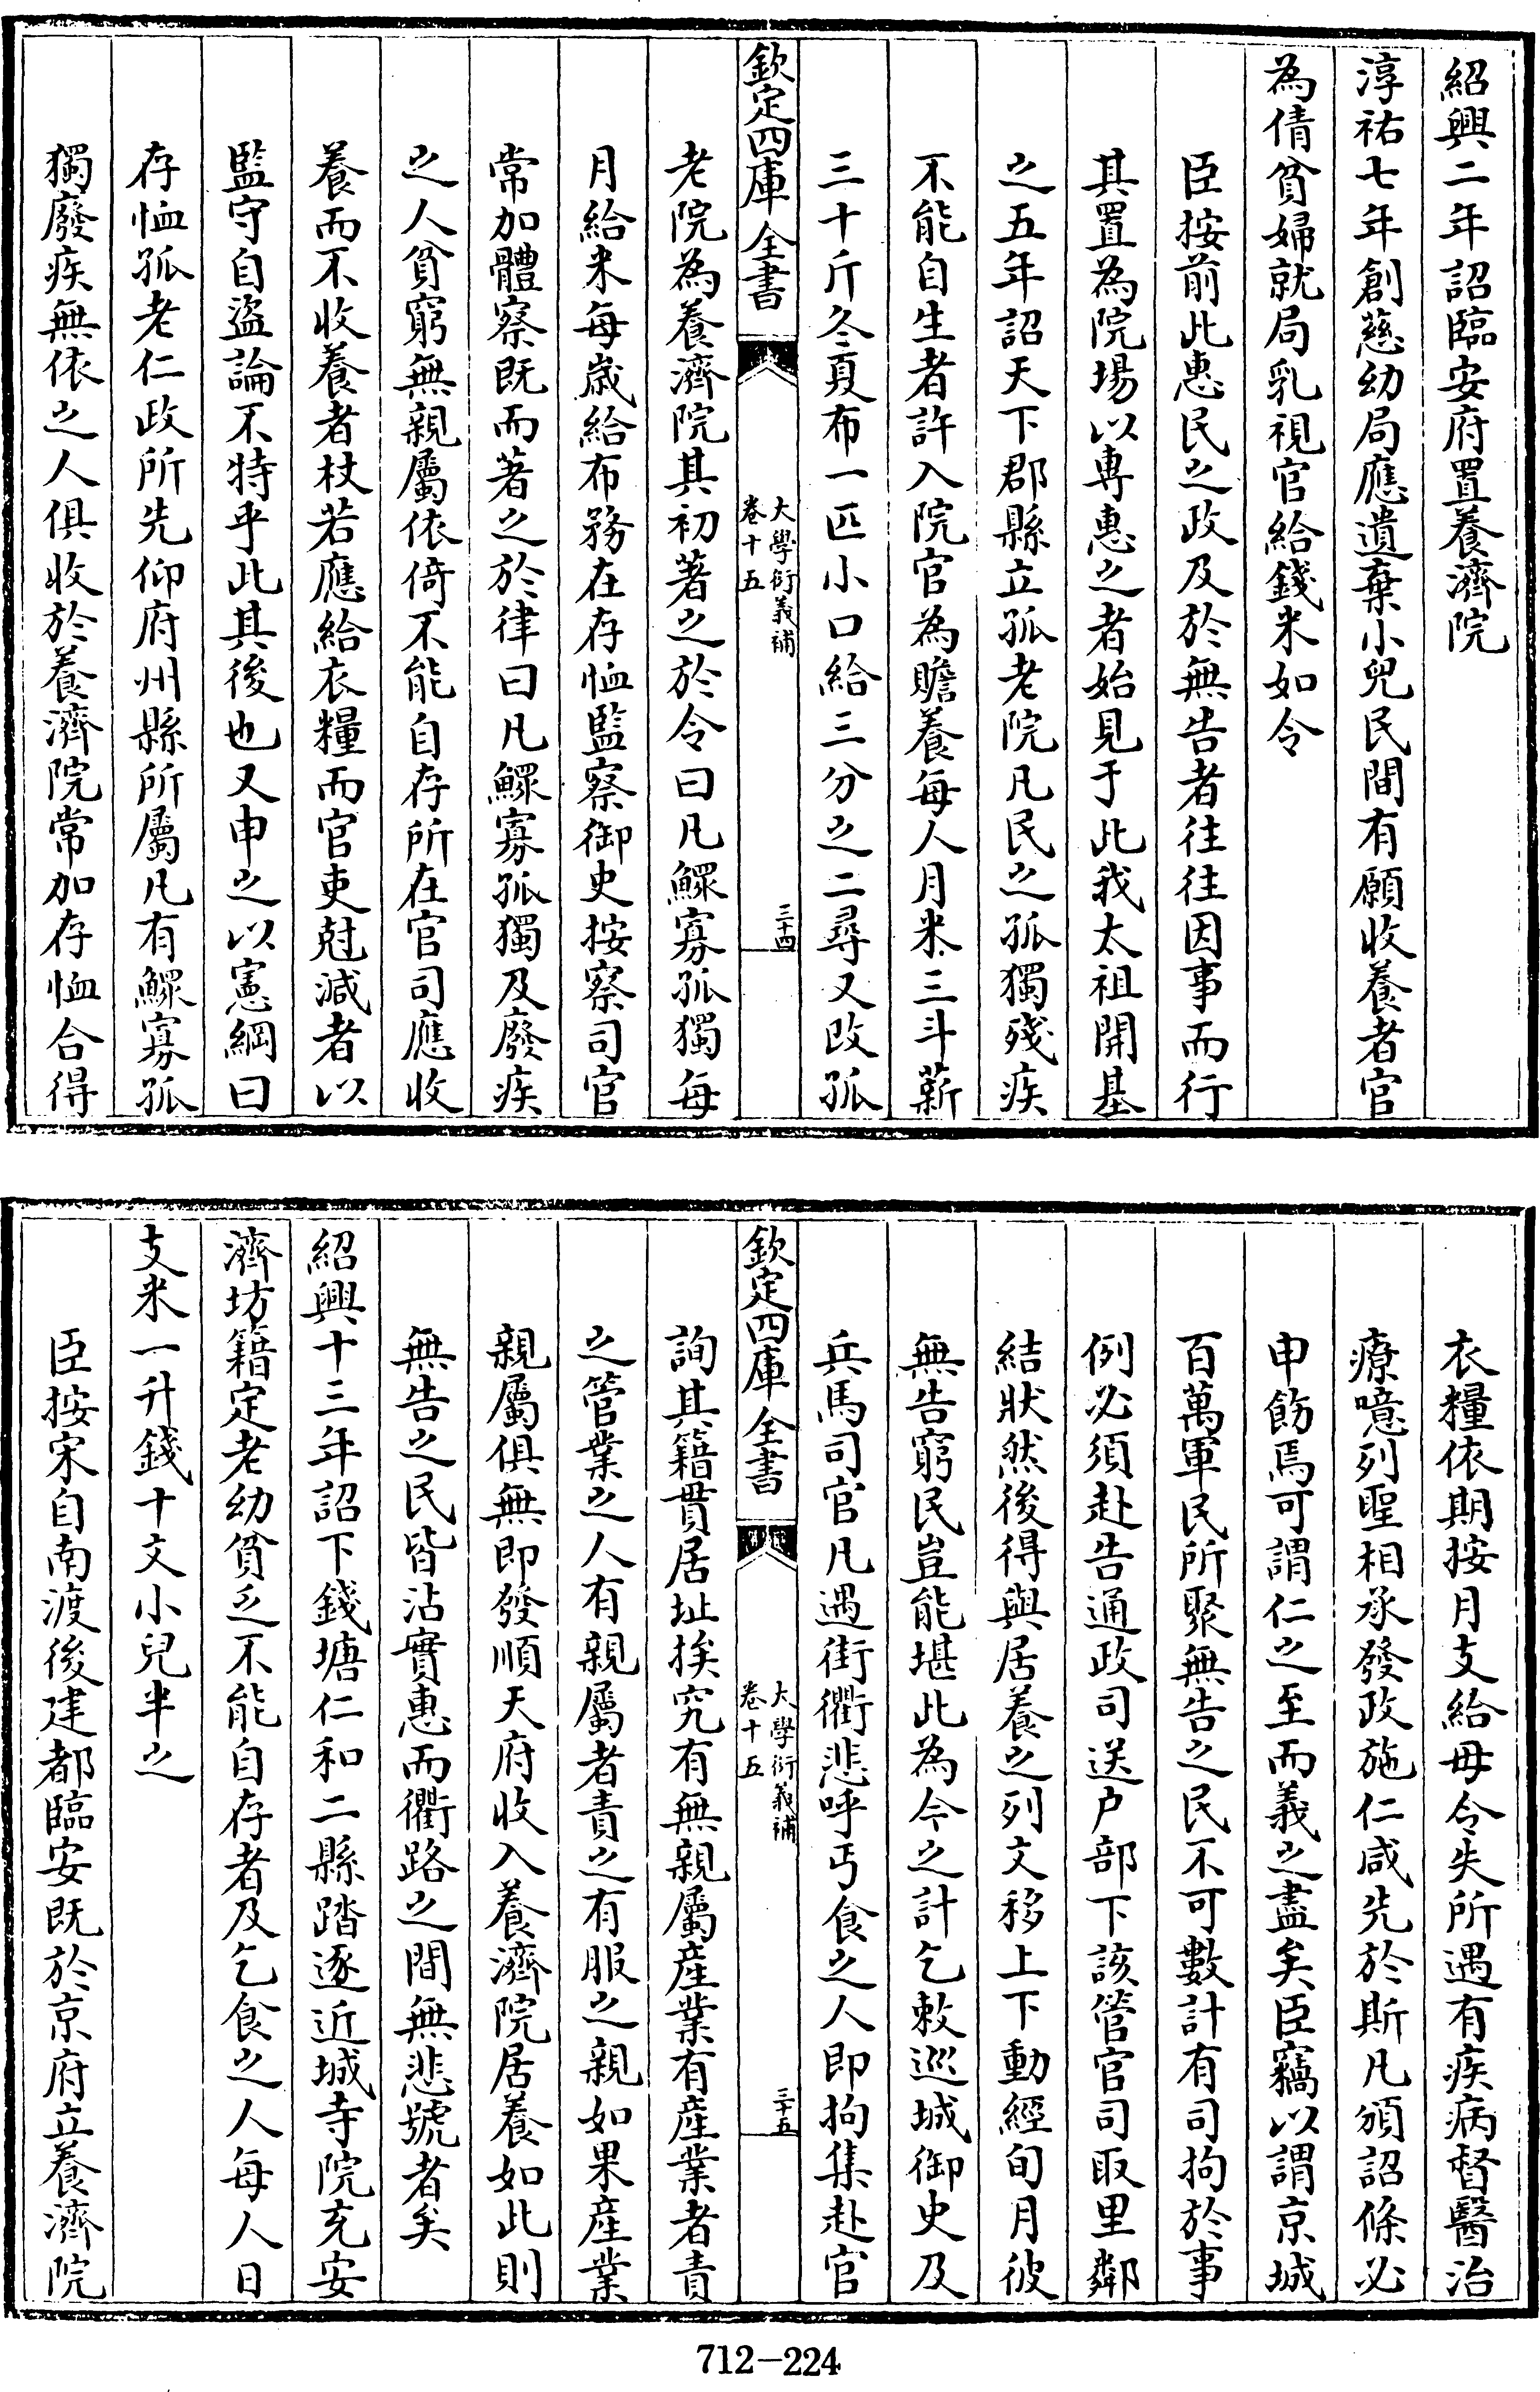 紹興二年詔臨安府置養濟院
淳祐七年創慈幼局應遺棄小兒民間有願收養者官
為倩貧婦就局乳視官給錢米如令
臣按前此惠民之政及於無告者往往因事而行
其置為院場以專惠之者始見于此我太祖開基
之五年詔天下郡縣立孤老院凡民之孤獨殘疾
不能自生者許入院官為贍養每人月米三斗薪
三十斤冬夏布一匹小口給三分之二尋又改孤
欽定四庫全書
大學衍義補
卷十五
三十四
老院為養濟院其初著之於令曰凡鰥寡孤獨每
月給米每歲給布務在存恤監察御史按察司官
常加體察既而著之於律曰凡鰥寡孤獨及廢疾
之人貧窮無親屬依倚不能自存所在官司應收
養而不收養者杖若應給衣糧而官吏尅減者以
監守自盜論不特乎此其後也又申之以憲綱曰
存恤孤老仁政所先仰府州縣所屬凡有鰥寡孤
獨廢疾無依之人俱收於養濟院常加存恤合得
衣糧依期按月支給毋令失所遇有疾病督醫治
療噫列聖相承發政施仁咸先於斯凡頒詔條必
申飭焉可謂仁之至而義之盡矣臣竊以謂京城
百萬軍民所聚無告之民不可數計有司拘於事
例必須赴告通政司送户部下該管官司取里鄰
結狀然後得與居養之列文移上下動經旬月彼
無告窮民豈能堪此為今之計乞敕巡城御史及
兵馬司官凡遇街衢悲呼丐食之人即拘集赴官
欽定四庫全書
大學衍義補
卷十五
三十五
詢其籍貫居址挨究有無親屬産業有産業者責
之管業之人有親屬者責之有服之親如果産業
親屬俱無即發順天府收入養濟院居養如此則
無告之民皆沾實惠而衢路之間無悲號者矣
紹興十三年詔下錢塘仁和二縣踏逐近城寺院充安
濟坊籍定老幼貧乏不能自存者及乞食之人每人日
支米一升錢十文小兒半之
臣按宋自南渡後建都臨安既於京府立養濟院
712-224